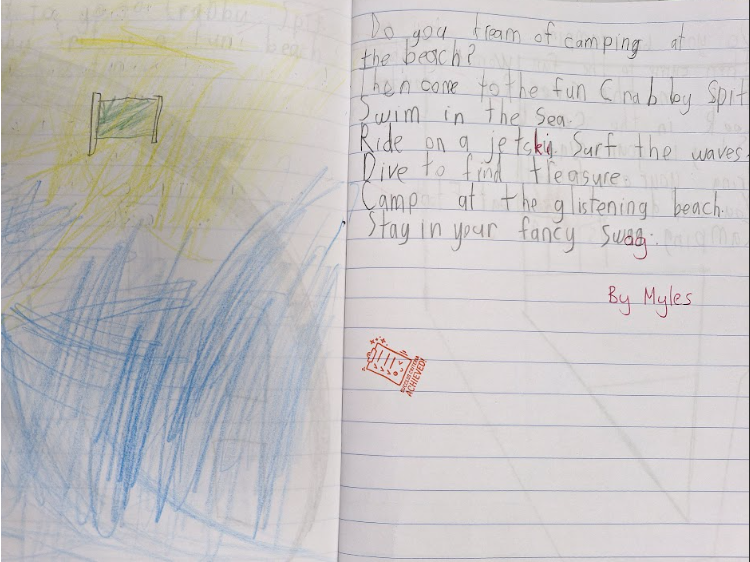 Do you tream of camping at
the beach?
Then come to the fun Crabby Spit
Swim in the Sea.
Ride on a jetskiq. Surf the waves.
Dive to find treasure.
Camp at the glistening beach.
Stay in your fancy Swag.
By Myles
SUCCESS CRITERIA
ACHIEVED!